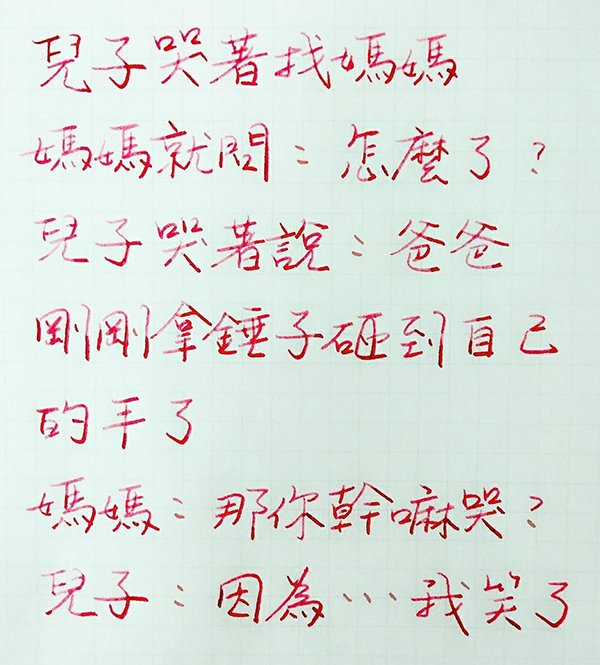 兒子哭著找媽媽
媽媽就問：怎麼了？
兒子哭著說：爸爸
剛剛拿錘子砸到自己
的手了
媽媽：那你幹嘛哭？
兒子：因為…我笑了